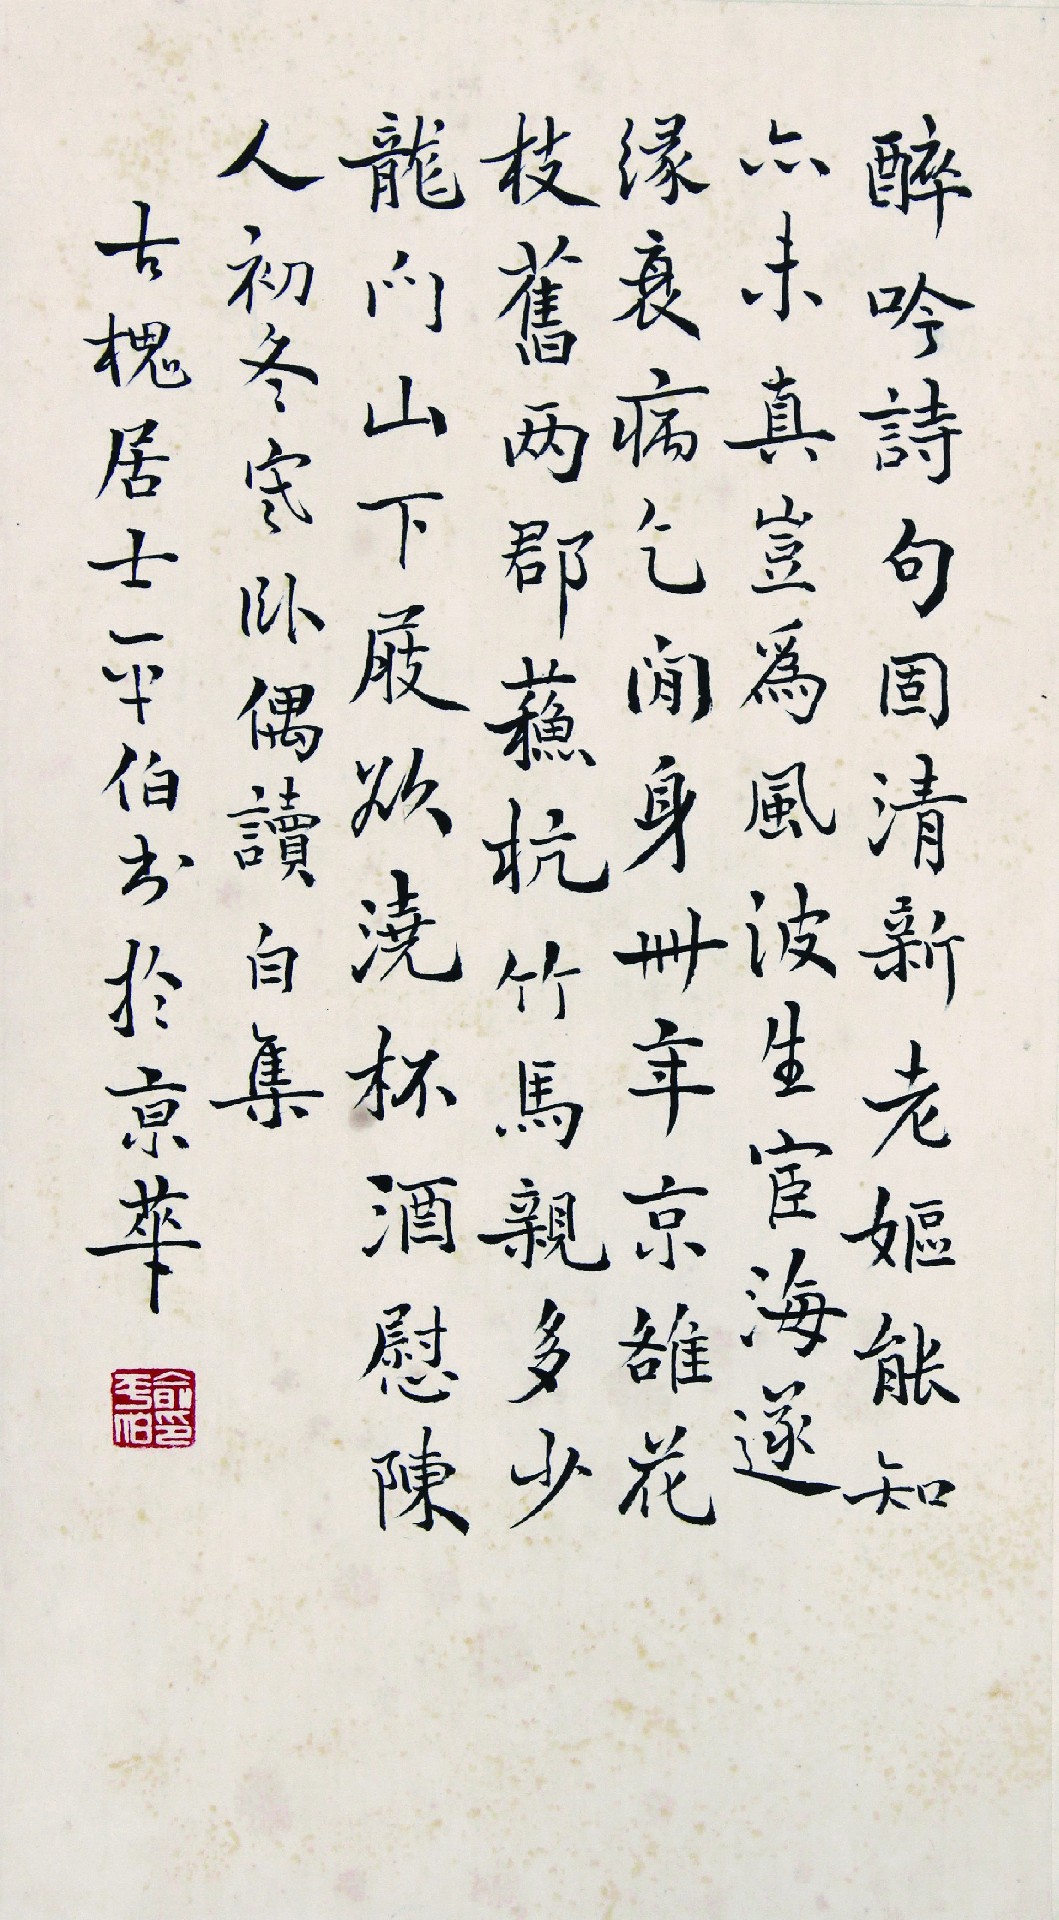 醉吟詩句固清新老嫗能知
亦未真豈爲風波生宦海遂
緣衰病乞閒身卅年京雒花
枝舊两郡蘓杭竹馬親多少
龍门山下屐欲澆杯酒慰陳
人初冬寒卧偶讀白集
古槐居士平伯书於京華
俞平伯印